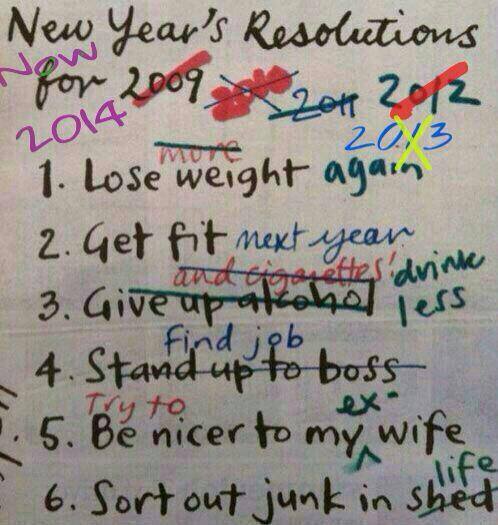 New Year's Resolutions
Now for 2009 2011 2012
2014 2013
more
1. Lose weight again
2. Get fit next year
and cigarettes' drink
3. Give up alcohol less
Find job
4. Stand up to boss
Try to ex-
5. Be nicer to my wife
life
6. Sort out junk in shed